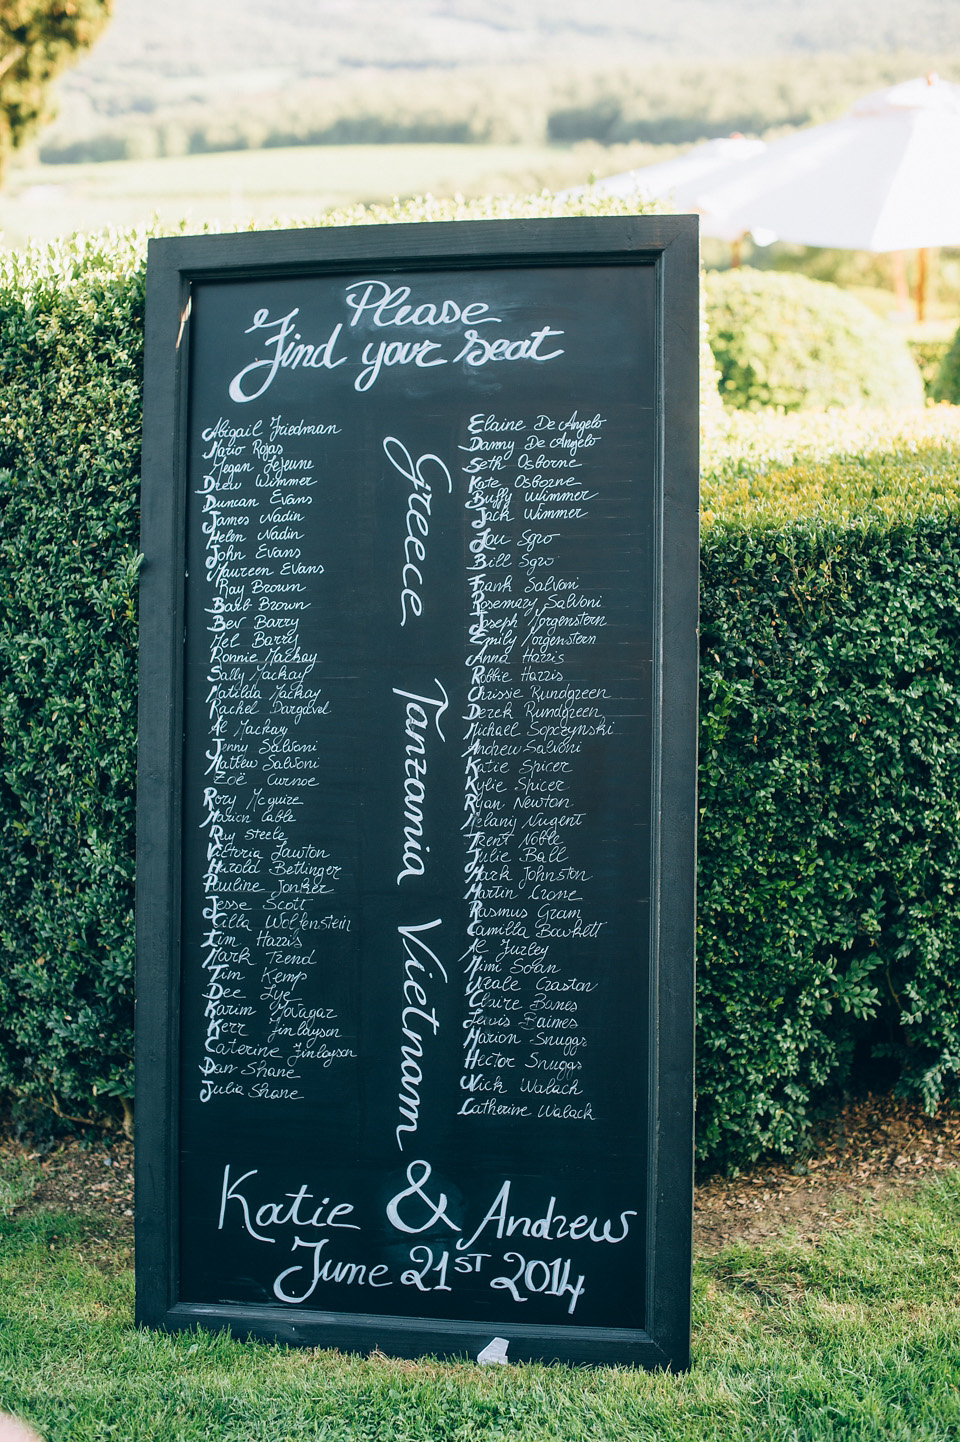 Please
Find your seat
Abigail Friedman
Mario Rojas
Megan LeJeune
Drew Wimmer
Duncan Evans
James Nadin
Helen Nadin
John Evans
Maureen Evans
Ray Brown
Barb Brown
Bev Barry
Mel Barry
Ronnie Mackay
Sally Mackay
Matilda Mackay
Rachel Dargavel
Al Mackay
Jenny Salvoni
Mathew Salvoni
Zoë Curnoe
Rory McGuire
Marion Cable
Ray Steele
Victoria Lawton
Harold Bettinger
Pauline Jonker
Jesse Scott
Cilla Wolfenstein
Tim Harris
Mark Trend
Tim Kemp
Dee Lye
Karim
Kerr Finlayson
Caterine Finlayson
Dan Shane
Julia Shane
Greece Tanzania Vietnam
Elaine De Angelo
Danny De Angelo
Seth Osborne
Kate Osborne
Buffy Wimmer
Jack Wimmer
Lou Sgro
Bill Sgro
Frank Salvoni
Rosemary Salvoni
Joseph Morgenstern
Emily Morgenstern
Anna Harris
Robbie Harris
Chrissie Rundgreen
Derek Rundgreen
Michael Sopczynski
Andrew Salvoni
Katie Spicer
Kylie Spicer
Ryan Newton
Melany Nugent
Trent Noble
Julie Ball
Mark Johnston
Martin Crone
Rasmus Gram
Camilla
Al Furley
Mimi
Gaston
Claire Banes
Baines
Marion Snuggs
Hector Snuggs
Nick Walack
Catherine Walack
Katie & Andrew
June 21ST 2014